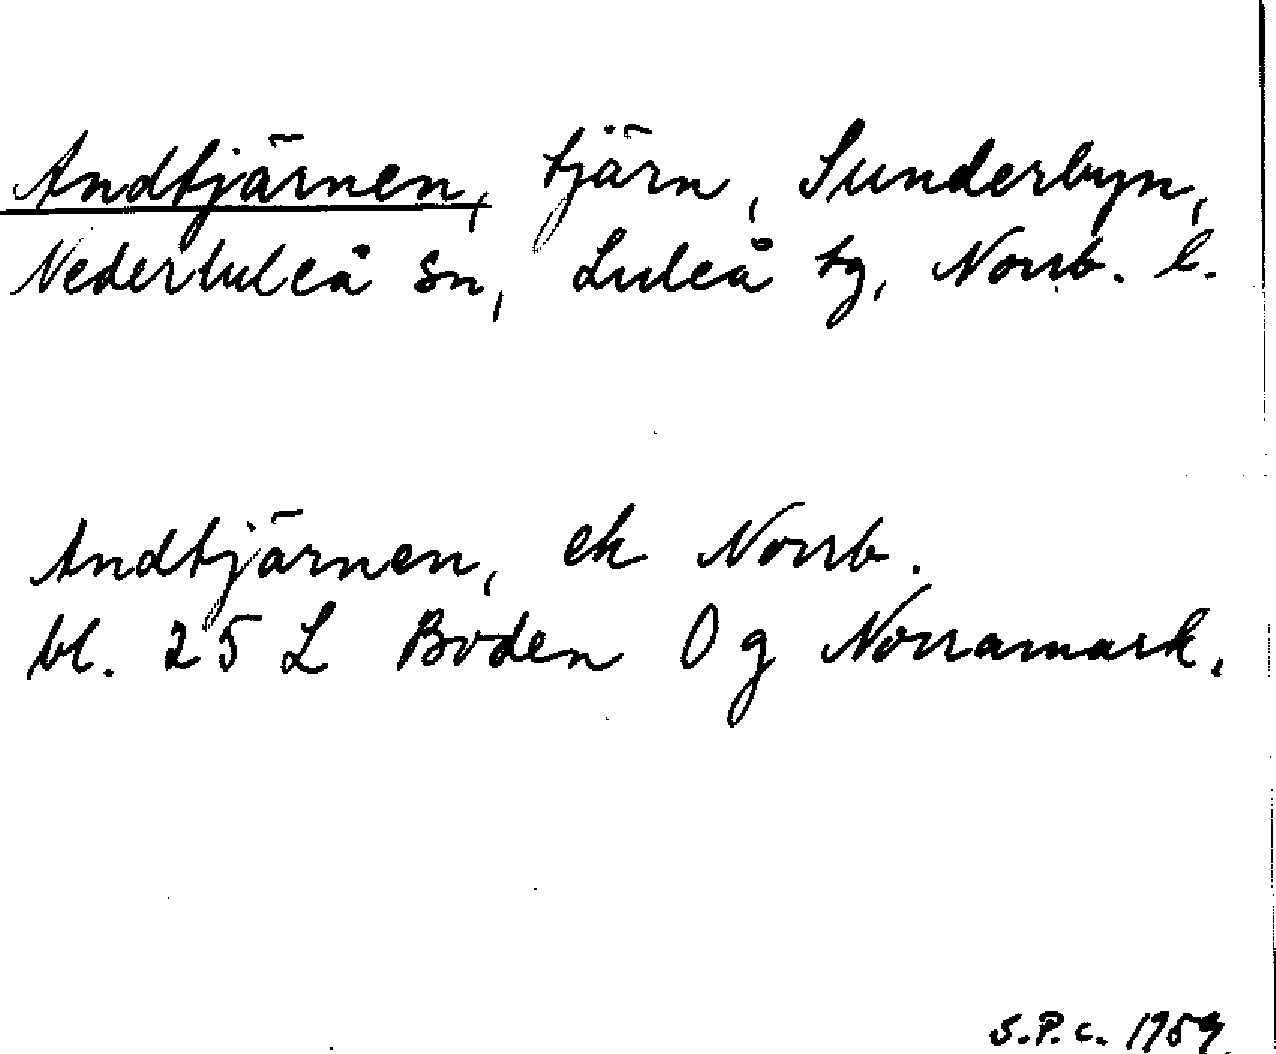 Andtjärnen, tjärn, Sunderbyn,
Nederluleå sn, Luleå tg, Norrb. l.
Andtjärnen, ek Norrb.
bl. 25 L Boden 0 g Norramark.
S.P.C. 1959